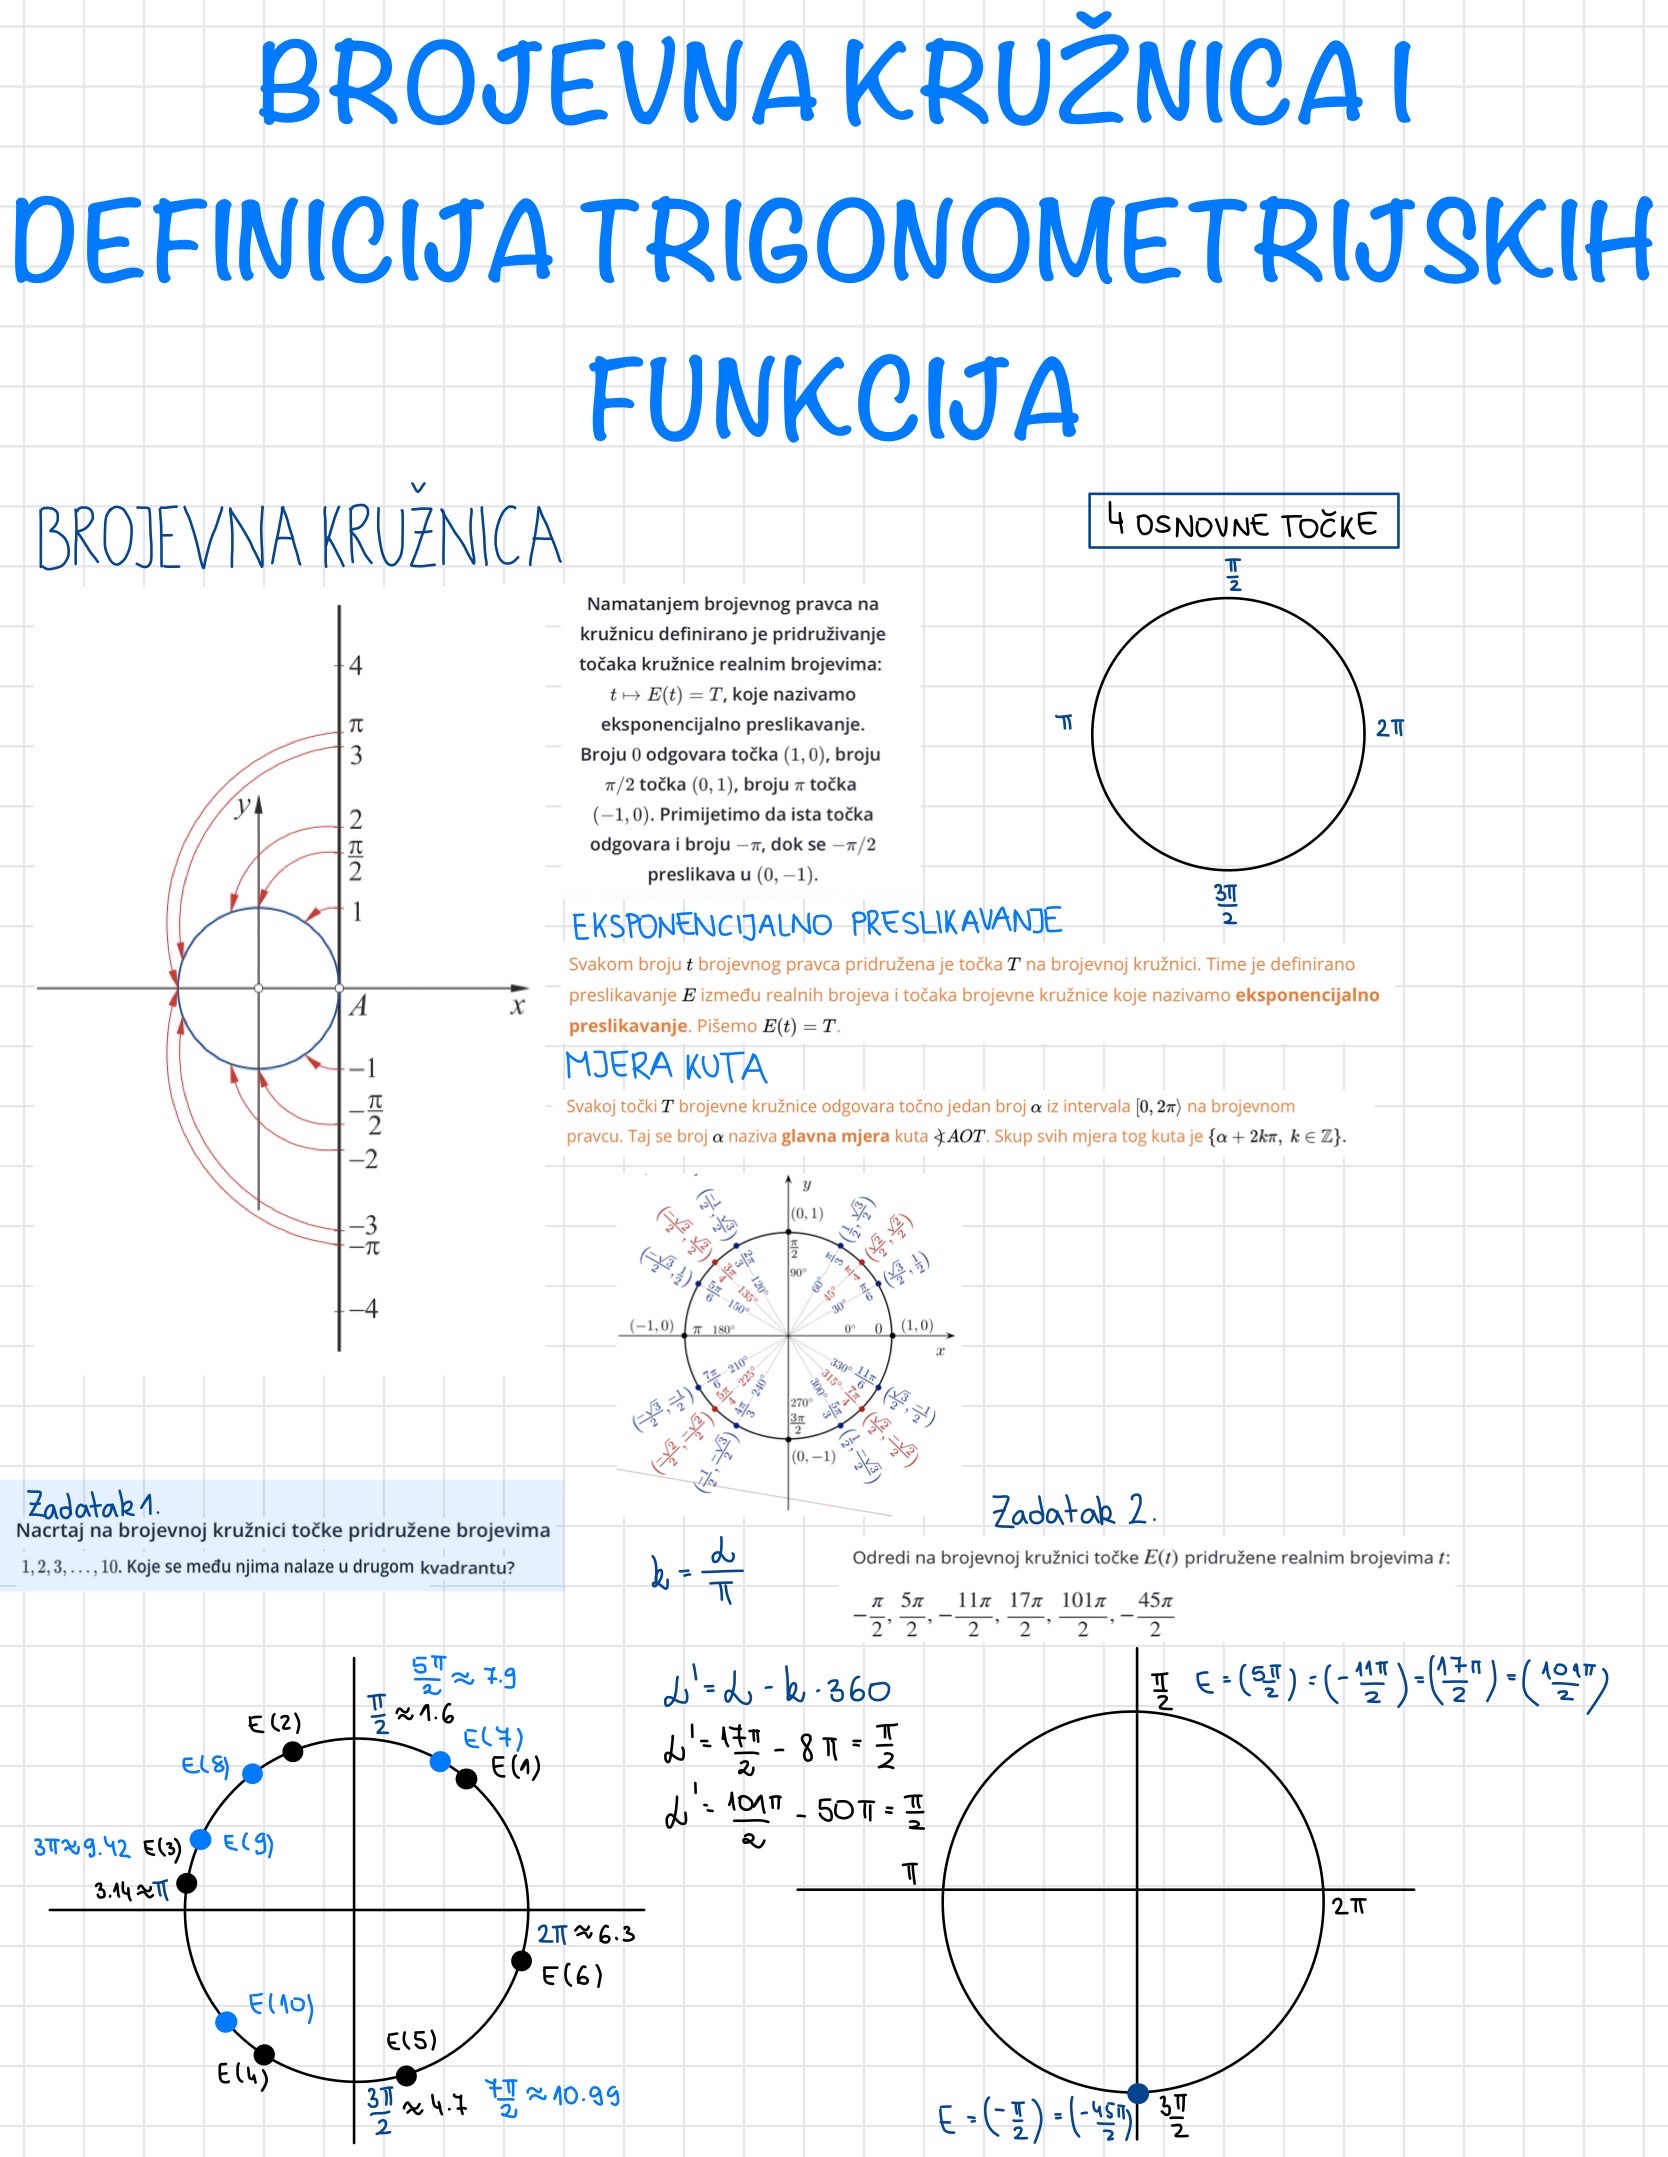 BROJEVNA KRUŽNICA I
DEFINICIJA TRIGONOMETRIJSKIH
FUNKCIJA
BROJEVNA KRUŽNICA
4
π
3
y
2
π/2
1
A
x
-1
-π/2
-2
-3
-π
-4
Namatanjem brojevnog pravca na
kružnicu definirano je pridruživanje
točaka kružnice realnim brojevima:
t ↦ E(t) = T, koje nazivamo
eksponencijalno preslikavanje.
Broju 0 odgovara točka (1, 0), broju
π/2 točka (0, 1), broju π točka
(−1, 0). Primijetimo da ista točka
odgovara i broju −π, dok se −π/2
preslikava u (0, −1).
4 OSNOVNE TOČKE
π/2
π
2π
3π/2
EKSPONENCIJALNO PRESLIKAVANJE
Svakom broju t brojevnog pravca pridružena je točka T na brojevnoj kružnici. Time je definirano
preslikavanje E između realnih brojeva i točaka brojevne kružnice koje nazivamo eksponencijalno
preslikavanje. Pišemo E(t) = T.
MJERA KUTA
Svakoj točki T brojevne kružnice odgovara točno jedan broj α iz intervala [0, 2π⟩ na brojevnom
pravcu. Taj se broj α naziva glavna mjera kuta ∢AOT. Skup svih mjera tog kuta je {α + 2kπ, k ∈ ℤ}.
y
(0, 1)
(−1/2, √3/2)
(1/2, √3/2)
(−√2/2, √2/2)
(√2/2, √2/2)
(−√3/2, 1/2)
(√3/2, 1/2)
π/2
90°
2π/3 120°
3π/4 135°
5π/6 150°
π/3 60°
π/4 45°
π/6 30°
(−1, 0)
π 180°
0° 0
(1, 0)
x
7π/6 210°
5π/4 225°
4π/3 240°
270°
3π/2
300° 5π/3
315° 7π/4
330° 11π/6
(−√3/2, −1/2)
(√3/2, −1/2)
(−√2/2, −√2/2)
(√2/2, −√2/2)
(−1/2, −√3/2)
(1/2, −√3/2)
(0, −1)
Zadatak 1.
Nacrtaj na brojevnoj kružnici točke pridružene brojevima
1, 2, 3, . . . , 10. Koje se među njima nalaze u drugom kvadrantu?
5π/2 ≈ 7.9
π/2 ≈ 1.6
E(2)
E(7)
E(8)
E(1)
3π≈9.42 E(3) E(9)
3.14≈π
2π ≈ 6.3
E(6)
E(10)
E(5)
E(4)
3π/2 ≈ 4.7
7π/2 ≈ 10.99
k = α/π
α' = α - k · 360
α' = 17π/2 - 8π = π/2
α' = 101π/2 - 50π = π/2
Zadatak 2.
Odredi na brojevnoj kružnici točke E(t) pridružene realnim brojevima t:
−π/2, 5π/2, −11π/2, 17π/2, 101π/2, −45π/2
π/2
E = (5π/2) = (-11π/2) = (17π/2) = (101π/2)
π
2π
E = (-π/2) = (-45π/2)
3π/2